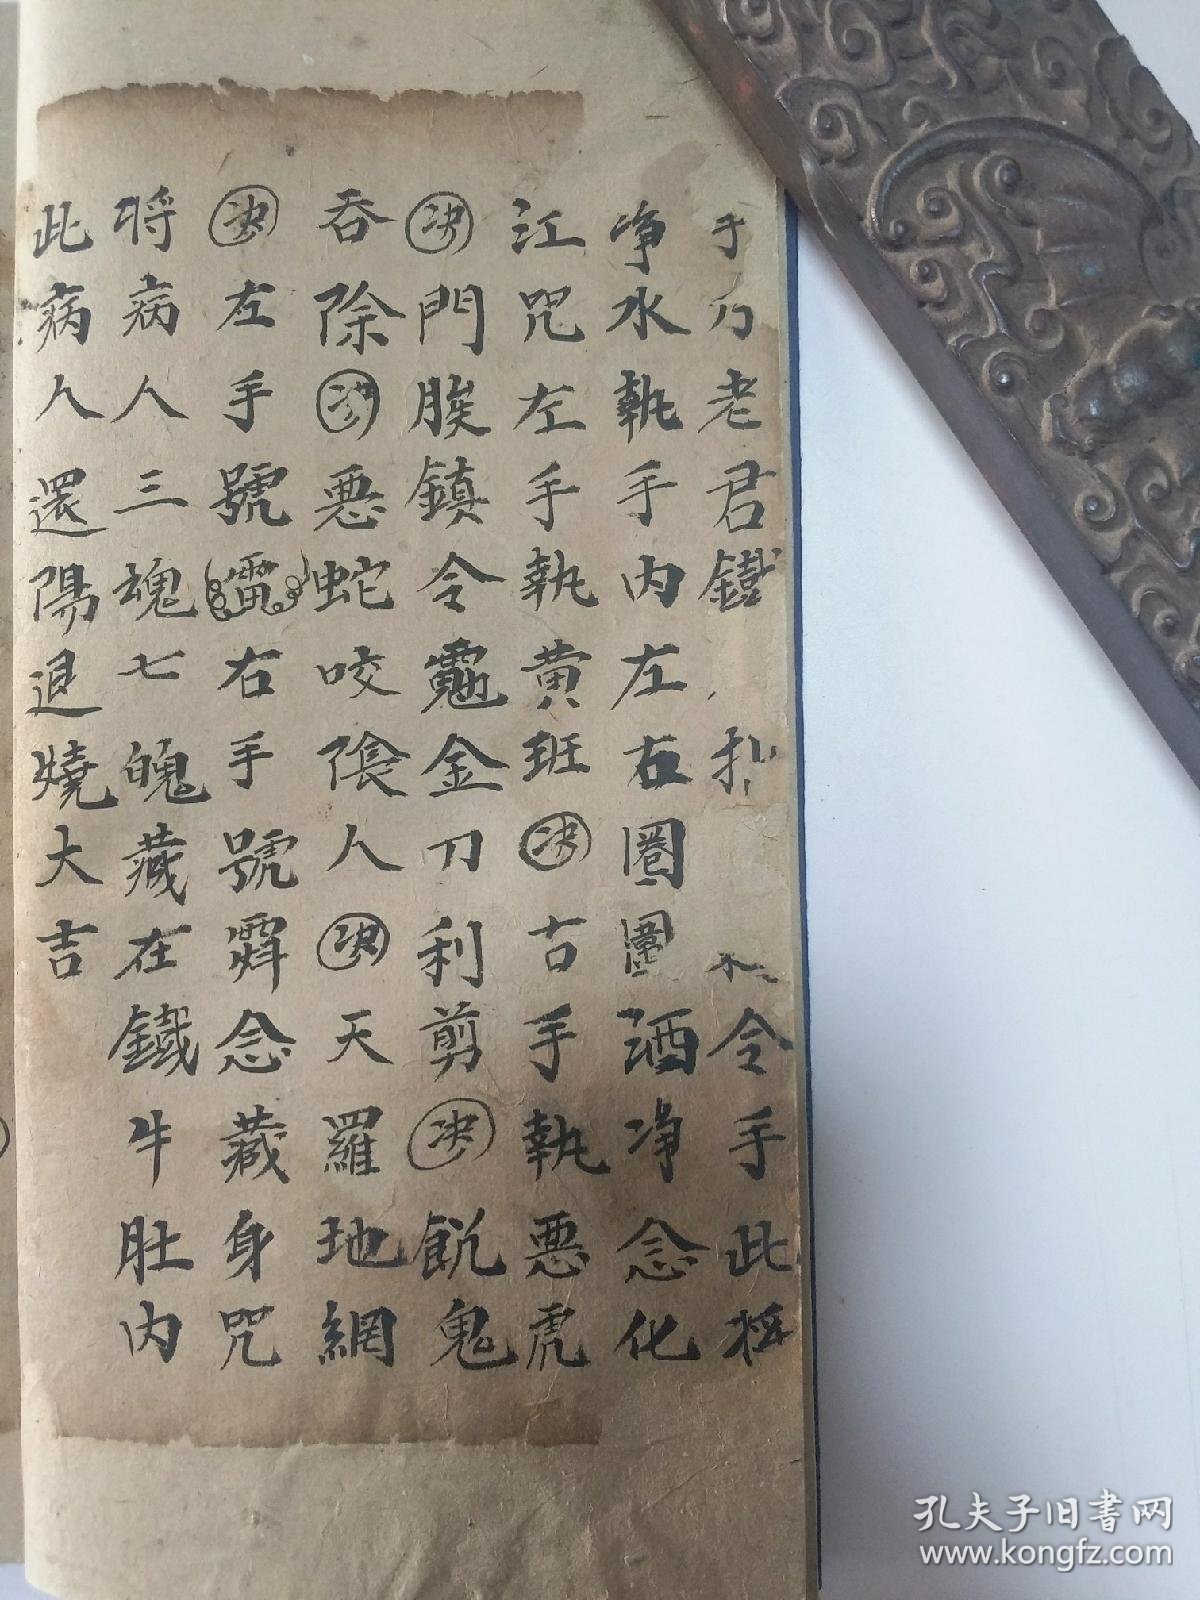 手乃老君鐵扒令手此將
净水執手内左右圈圍洒净念化
江咒左手執黄班决古手執惡虎
决門膎鎮令鬼金刀利剪决飢鬼
吞除决惡蛇咬倀人决天羅地網
决左手號雷右手號念藏身咒
将病人三魂七魄藏在鐵牛肚内
此病人還陽退燒大吉
孔夫子旧書网
www.kongfz.com